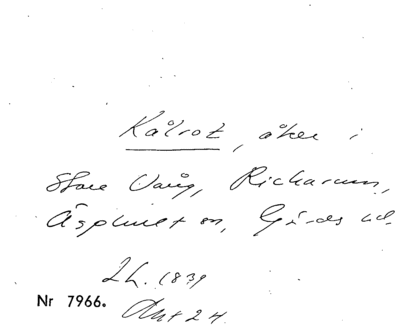 Kålrot, åker i
Store Vång, Rickarum,
Äsphult sn, Gärds hd.
LH. 1839
Nr 7966.
Akt 24.